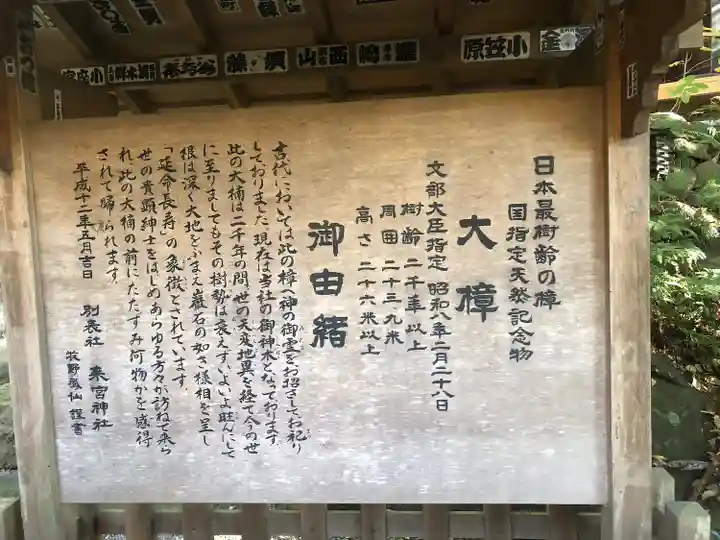 日本最樹齢の樟
国指定天然記念物
大樟
文部大臣指定 昭和八年二月二十八日
樹齢 二千年以上
周囲 二十三、九米
高さ 二十六米以上
御由緒
古代においては此の樟へ神の御霊をお招きしてお祀り
しておりました、現在は当社の御神木となっております
此の大楠は二千年の間世の天変地異を経て今の世
に至りましてもその樹勢は衰えずいよいよ旺んにして
根は深く大地をふまえ巌石の如き様相を呈し
「延命長寿」の象徴とされています
世の貴顕紳士をはじめあらゆる方々が訪ねて来ら
れ、此の大楠の前にたたずみ何物かを感得
されて帰られます。
平成十二年五月吉日
別表社 来宮神社
小笠原
西山
須藤